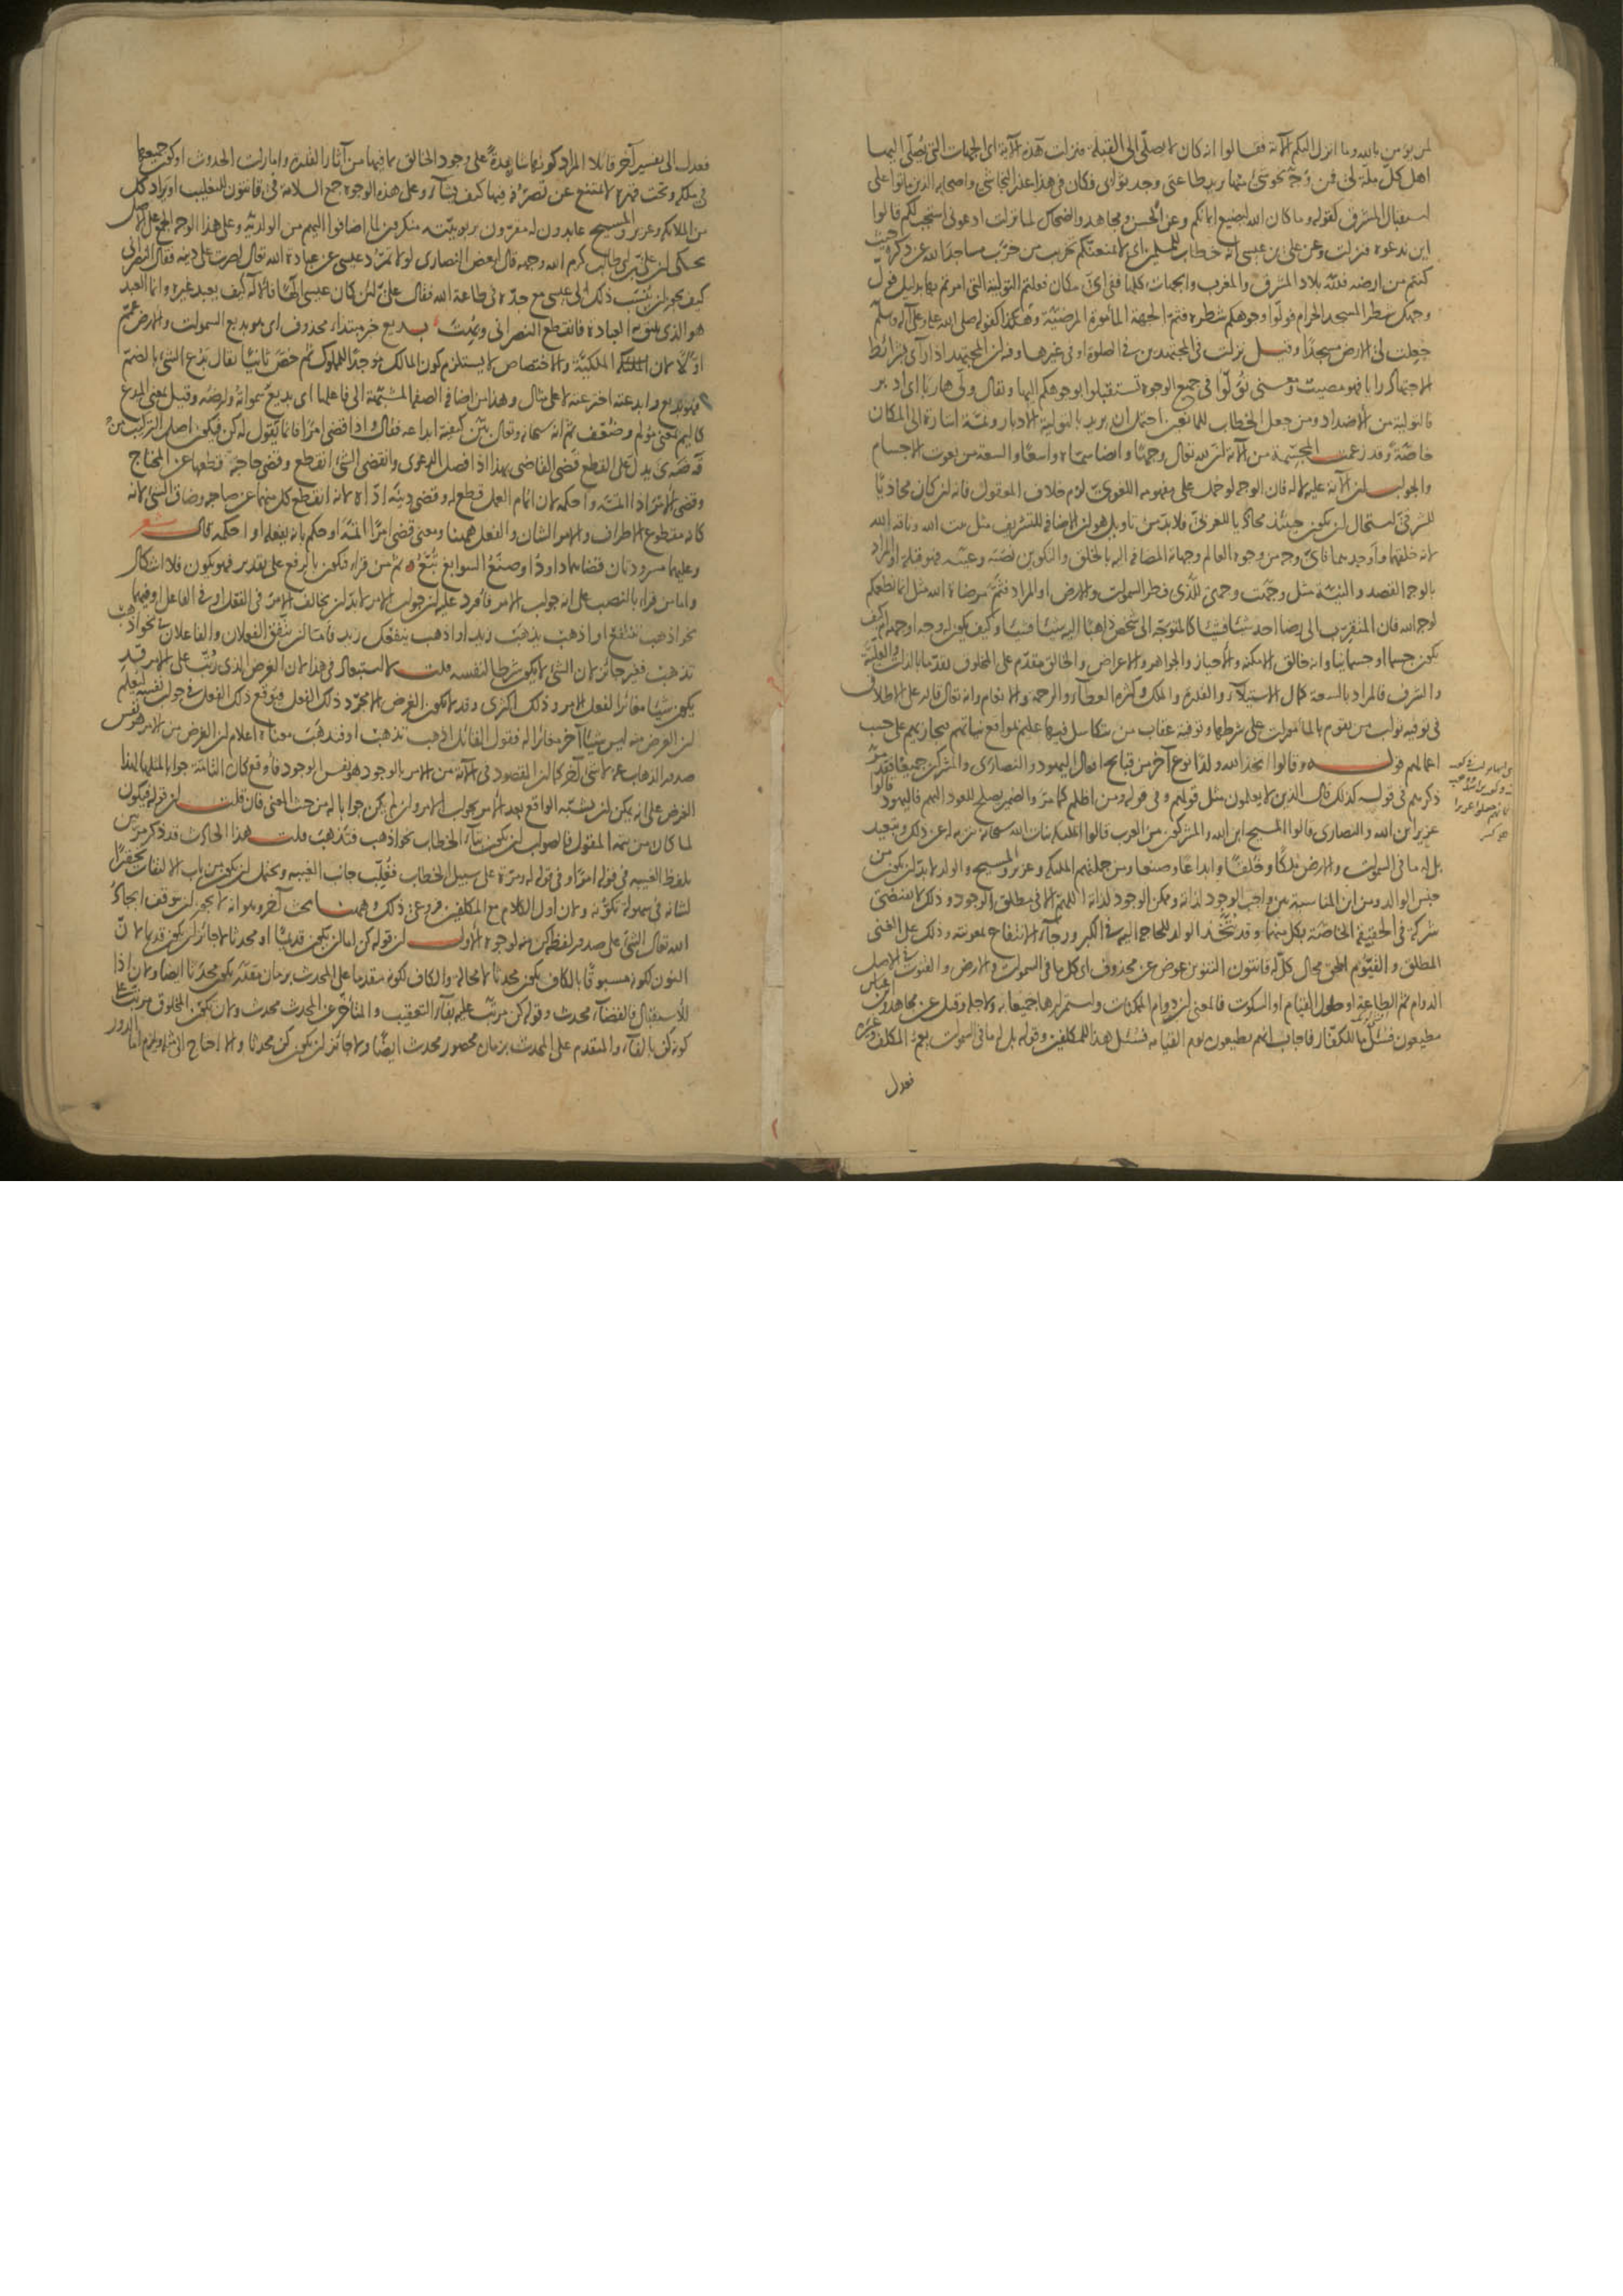 لمن يؤمن بالله وما انزل اليكم الآية فقالوا انه كان لا يصلى الى القبلة فنزلت هذه الآية اى الجهات التى يصلى اليها
اهل كل ملة لى فمن وجه نحو شئ منها يريد طاعتى وجد ثوابى فكان فى هذا عذر النجاشى واصحابه الذين ماتوا على
استقبال المشرق كقوله وما كان الله ليضيع ايمانكم وعن الحسن ومجاهد والضحاك لما نزلت ادعونى استجب لكم قالوا
اين ندعوه فنزلت وعن على بن عيسى انه خطاب للمسلمين اى لا يمنعنكم تخريب من خرب مساجد الله عن ذكره حيث
كنتم من ارضه فلله بلاد المشرق والمغرب والجهات كلها ففى اى مكان فعلتم التولية التى امرتم بها بدليل فول
وجهك شطر المسجد الحرام فولوا وجوهكم شطره فثم الجهة المأمورة المرضية وهكذا كقوله صلى الله عليه وعلى آله وسلم
جعلت لى الارض مسجدا وقيل نزلت فى المجتهدين فى الصلوة او فى غيرها وفيه ان المجتهد اذا رأى بشرائط
الاجتهاد رايا فهو مصيب ومعنى تولوا فى جميع الوجوه تستقبلوا بوجوهكم اليها ويقال ولى هاربا اى ادبر
فالتولية من الاضداد ومن جعل الخطاب للمانعين احتمل ان يريد بالتولية الادبار وثمة اشارة الى المكان
خاصة وقد زعمت المجسمة من الآية ان لله تعالى وجها وايضا سماه واسعا والسعة من نعوت الاجسام
والجواب ان الآية عليه لا له فان الوجه لو حمل على مفهومه اللغوى لزم خلاف المعقول فانه ان كان محاذيا
للشرقى استحال ان يكون حينئذ محاذيا للغربى فلا بد من تأويل هو ان الاضافة للتشريف مثل بيت الله وناقة الله
لانه خلقهما واوجدهما فاى وجه من وجوه العالم وجهاته المضافة اليه بالخلق والتكوين نصبه وعينه فهو قبلة او المراد
بالوجه القصد والنية مثل وجهت وجهى للذى فطر السموات والارض او المراد فثم مرضاة الله مثل انما نطعمكم
لوجه الله فان المتقرب الى رضا احد شيئا فشيئا كالمتوجه الى شخص ذاهبا اليه شيئا فشيئا وكيف يكون له وجه او جهة ام كيف
يكون جسما او جسمانيا وانه خالق الامكنة والاحياز والجواهر والاعراض والخالق مقدم على المخلوق تقدما بالذات والعلية
والشرف فالمراد بالسعة كمال الاستيلاء والقدرة والملك وكثرة العطاء والرحمة والانعام وانه تعالى قادر على الاطلاق
فى توفية ثواب من يقوم بالمأمورات على شرطها وتوفية عقاب من تكاسل فيها عليم بمواقع نياتهم فيجازيهم على حسب
اعمالهم قوله وقالوا اتخذ الله ولدا نوع آخر من قبائح افعال اليهود والنصارى والمشركين جميعا فقد مر
ذكرهم فى قوله كذلك قال الذين لا يعلمون مثل قولهم وفى قوله ومن اظلم كما مر والضمير يصلح للعود اليهم فاليهود قالوا
عزير ابن الله والنصارى قالوا المسيح ابن الله والمشركون من العرب قالوا الملائكة بنات الله سبحانه تنزيه له عن ذلك وتبعيد
بل له ما فى السموات والارض ملكا وخلقا وابداعا وصنعا ومن جملتهم الملئكة وعزير والمسيح والولد لا بد ان يكون من
جنس الوالد ومن اين المناسبة بين واجب الوجود لذاته وممكن الوجود لذاته اللهم الا فى مطلق الوجود وذلك لا يقتضى
شركة فى الحقيقة الخاصة بكل منهما وقد يتخذ الولد للحاجة اليه فى الكبر ورجاء الانتفاع بمعونته وذلك على الغنى
المطلق والقيوم الحق محال كل له قانتون التنوين عوض عن محذوف اى كل ما فى السموات والارض والقنوت فى الاصل
الدوام ثم الطاعة او طول القيام او السكوت فالمعنى ان دوام الممكنات واستمرارها جميعا به ولاجله وقيل عن مجاهد وابن عباس
مطيعون فسئل ما للكفار فاجاب انهم يطيعون يوم القيامة فسئل هذا للمكلفين وقوله بل له ما فى السموات يعم المكلف وغيره
فعدل
فعدل الى تفسير آخر قائلا المراد كونها شاهدة على وجود الخالق بما فيها من آثار القدرة وامارات الحدوث او كون جميعها
فى ملكه وتحت قهره لا تمتنع عن تصرفه فيها كيف يشاء وعلى هذه الوجوه جمع السلامة فى قانتون للتغليب او يراد كل
من الملائكة وعزير والمسيح عابدون له مقرون بربوبيته منكرون لما اضافوا اليهم من الولدية وعلى هذا الوجه الجمع على الاصل
يحكى ان على بن ابى طالب كرم الله وجهه قال لبعض النصارى لولا تمرد عيسى عن عبادة الله تعالى لصرت على دينه فقال النصرانى
كيف يجوز ان ينسب ذلك الى عيسى مع جده فى طاعة الله فقال على ان كان عيسى الها فالاله كيف يعبد غيره وانما العبد
هو الذى يليق به العبادة فانقطع النصرانى وبهت بديع خبر مبتداء محذوف اى هو بديع السموات والارض عمم
اولا لان الملكية والاختصاص لا يستلزم كون المالك موجدا للمملوك ثم خص ثانيا يقال بدع الشئ بالضم
فهو بديع وابدعته اخترعته لا على مثال وهذا من اضافة الصفة المشبهة الى فاعلها اى بديع سمواته وارضه وقيل بمعنى المبدع
كاليم بمعنى مؤلم وضعف ثم انه سبحانه وتعالى بين كيفية ابداعه فقال واذا قضى امرا فانما يقول له كن فيكون اصل التركيب من
ق ض ى يدل على القطع قضى القاضى بهذا اذا فصل الدعوى وانقضى الشئ انقطع وقضى حاجته قطعها عن المحتاج
وقضى الامر اذا اتمه واحكمه لان اتمام العمل قطع له وقضى دينه اداه لانه انقطع كل منهما عن صاحبه وضاق الشئ لانه
كانه مقطوع الاطراف والامر الشان والفعل ههنا ومعنى قضى امرا اتمه او حكم بانه يفعله او احكمه قال شعر
وعليهما مسرودتان قضاهما داود او صنع السوابغ تبع ثم من قراء فيكون بالرفع على تقدير فهو يكون فلا اشكال
واما من قراء بالنصب على انه جواب الامر فأورد عليه ان جواب الامر لا بد ان يخالف الامر فى الفعل او فى الفاعل او فيهما
نحو اذهب تنتفع او اذهب يذهب زيد او اذهب ينفعك زيد فاما ان يتفق الفعلان والفاعلان نحو اذهب
تذهب فغير جائز لان الشئ لا يكون شرطا لنفسه قلت لا استبعاد فى هذا لان الغرض الذى رتب على الامر قد
يكون شيئا مغائرا لفعل الامر وذلك اكثرى وقد لا يكون الغرض الا مجرد ذلك الفعل فيوقع ذلك الفعل فى جواب نفسه ليعلم
ان الغرض منه ليس شيئا آخر مغائرا له فقول القائل اذهب تذهب او فتذهب معناه اعلام ان الغرض من الامر هو نفس
صدور الذهاب عنه لا شئ آخر كما ان المقصود فى الآية من الامر بالوجود هو نفس الوجود فأوقع كان التامة جوابا لمثلها لهذا
الغرض على انه يمكن ان يشبه الواقع بعد الامر بجواب الامر وان لم يكن جوابا له من حيث المعنى فان قلت ان قوله فيكون
لما كان من تتمة المقول فالصواب ان يكون بتاء الخطاب نحو اذهب فتذهب قلت هذا الحادث قد ذكر مرتين
بلفظ الغيبة فى قوله امرا وفى قوله له ومرة على سبيل الخطاب فغلب جانب الغيبة ويحتمل ان يكون من باب الالتفات تحقيرا
لشانه فى سهولة تكونه ولان اول الكلام مع المكلفين فروعى ذلك وههنا بحث آخر وهو انه لا يجوز ان يتوقف ايجاد
الله تعالى لشئ على صدور لفظ كن منه لوجوه الاول ان قوله كن اما ان يكون قديما او محدثا لا جائز ان يكون قديما لان
النون لكونه مسبوقا بالكاف يكون محدثا لا محالة والكاف لكونه متقدما على المحدث بزمان مقدر يكون محدثا ايضا ولان اذا
للاستقبال فالقضاء محدث وقوله كن مرتب عليه بفاء التعقيب والمتأخر عن المحدث محدث ولان تكون المخلوق مرتب على
كونه كن بالفاء والمتقدم على المحدث بزمان محصور محدث ايضا ولا جائز ان يكون كن محدثا والا احتاج الى مثله ويلزم اما الدور